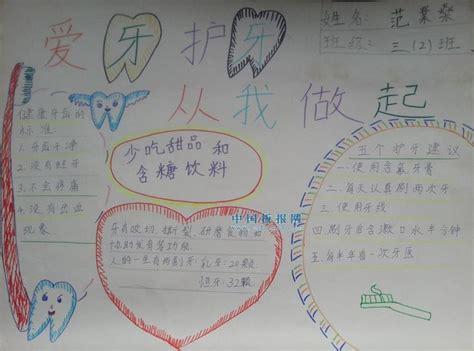 爱牙护牙
从我做起
姓名：范
班级：三（2）班
健康牙齿的
标准
1.牙齿干净
2.没有蛀牙
3.不会疼痛
4.没有出血
现象
少吃甜品和
含糖饮料
牙有咬切、撕裂、研磨食物和
协助发音等功能
人的一生有两副牙：乳牙：20颗
恒牙：32颗
中国板报网
五个护牙建议
一.使用含氟牙膏
二.每天认真刷两次牙
三.使用牙线
四.刷牙自含漱口水半分钟
五.每半年看一次牙医